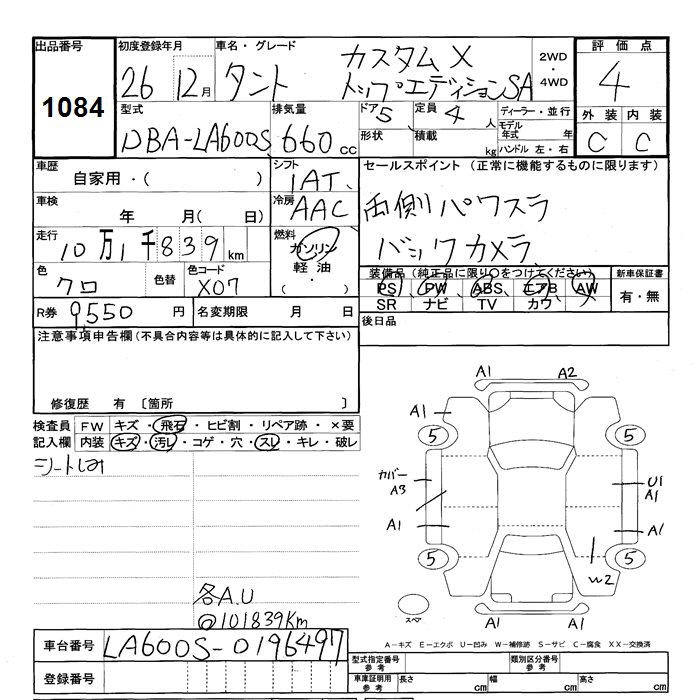 出品番号 初度登録年月 車名・グレード 2WD・4WD 評価点
1084 26 12月 タント カスタムX
トップエディションSA 4
型式 排気量 ドア 5 定員 4 人 ディーラー・並行 外装 内装
DBA-LA600S 660cc 形状 積載 kg モデル年式 年 C C
ハンドル 左・右
車歴 シフト セールスポイント（正常に機能するものに限ります）
自家用・( ) IAT
車検 冷房 両側パワスラ
年 月( 日) AAC
走行 燃料 バックカメラ
10万1千839km ガソリン
軽油
・
( )
色 色替 色コード 装備品（純正品に限り○をつけてください） 新車保証書
クロ X07 PS PW ABS エアB AW 有・無
SR ナビ TV カワ
R券 9,550 円 名変期限 月 日 後日品
注意事項申告欄(不具合内容等は具体的に記入して下さい)
修復歴 有 〔箇所 〕
検査員 FW キズ・飛石・ヒビ割・リペア跡・×要
記入欄 内装 キズ・汚レ・コゲ・穴・スレ・キレ・破レ
シートしみ
各A.U
@101839Km
A1 A2
A1
5 5
カバー
A3 U1
A1
A1 A1
5 5
W2
スペア
A1 A1
A-キズ E-エクボ U-凹み W-補修跡 S-サビ C-腐食 XX-交換済
車台番号 LA600S-0196497
型式指定番号 参考 類別区分番号 参考
登録番号 車庫証明用 参考 長さ cm 幅 cm 高さ cm